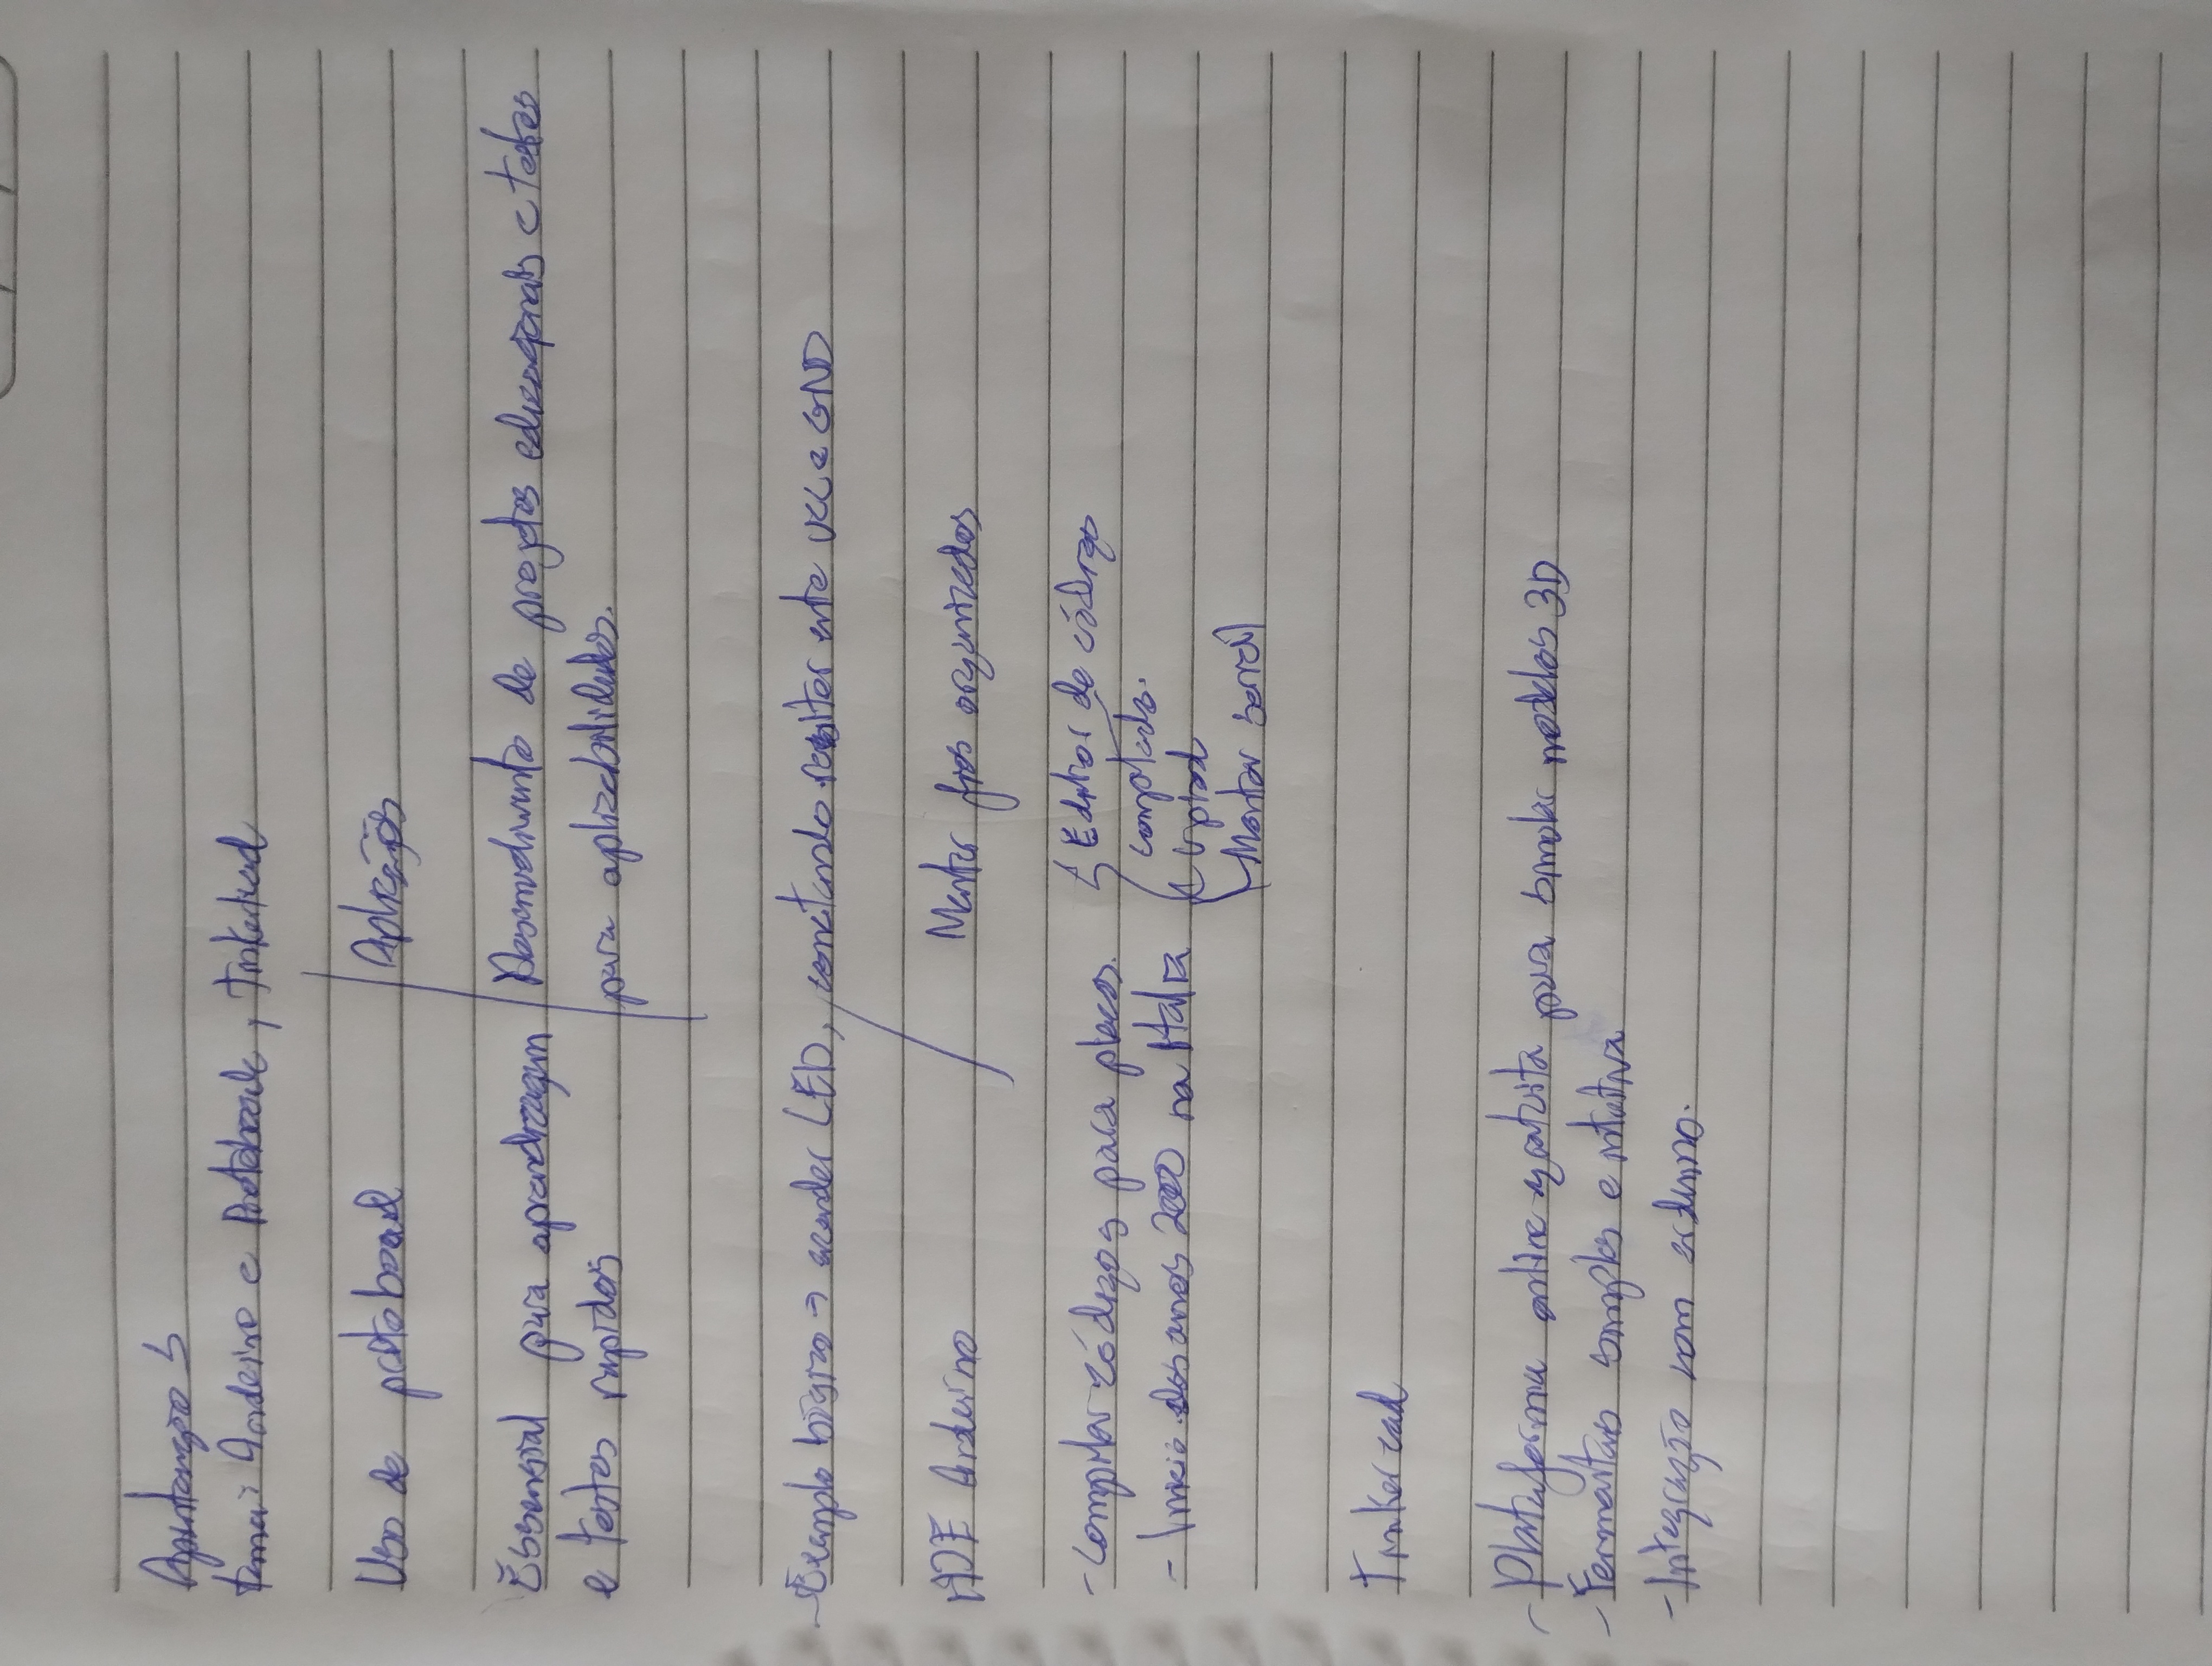 Apresentação 5
tema: Arduino e Protoboard, Tinkercad
Uso de protoboard
Aplicações
Essensial para aprendizagem
e testes rapidos
Desenvolvimento de projetos educacionais e testes
para aplicabilidades.
- Exemplo básico → acender LED, conectando resistor entre VCC e GND
IDE Arduino
Manter fios organizados
- Compilar códigos para placas.
- Inicio dos anos 2000 na Italia
Editor de código
compilado.
Upload
Monitor serial
Tinker cad
- Plataforma online gratuita para simular modelos 3D
- Ferramentas simples e intuitiva
- Integração com arduino.